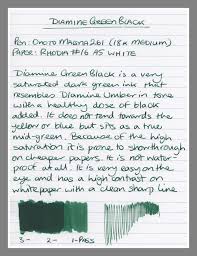 DIAMINE GREEN BLACK
PEN: ONOTO MAGNA 261 (18K MEDIUM)
PAPER: RHODIA #16 A5 WHITE
Diamine Green Black is a very
saturated dark green ink that
resembles Diamine Umber in tone
with a healthy dose of black
added. It does not tend towards the
yellow or blue but sits as a true
mid-green. Because of the high
saturation it is prone to showthrough
on cheaper papers. It is not water
proof at all. It is very easy on the
eye and has a high contrast on
white paper with a clean sharp line
3- 2- 1-PASS